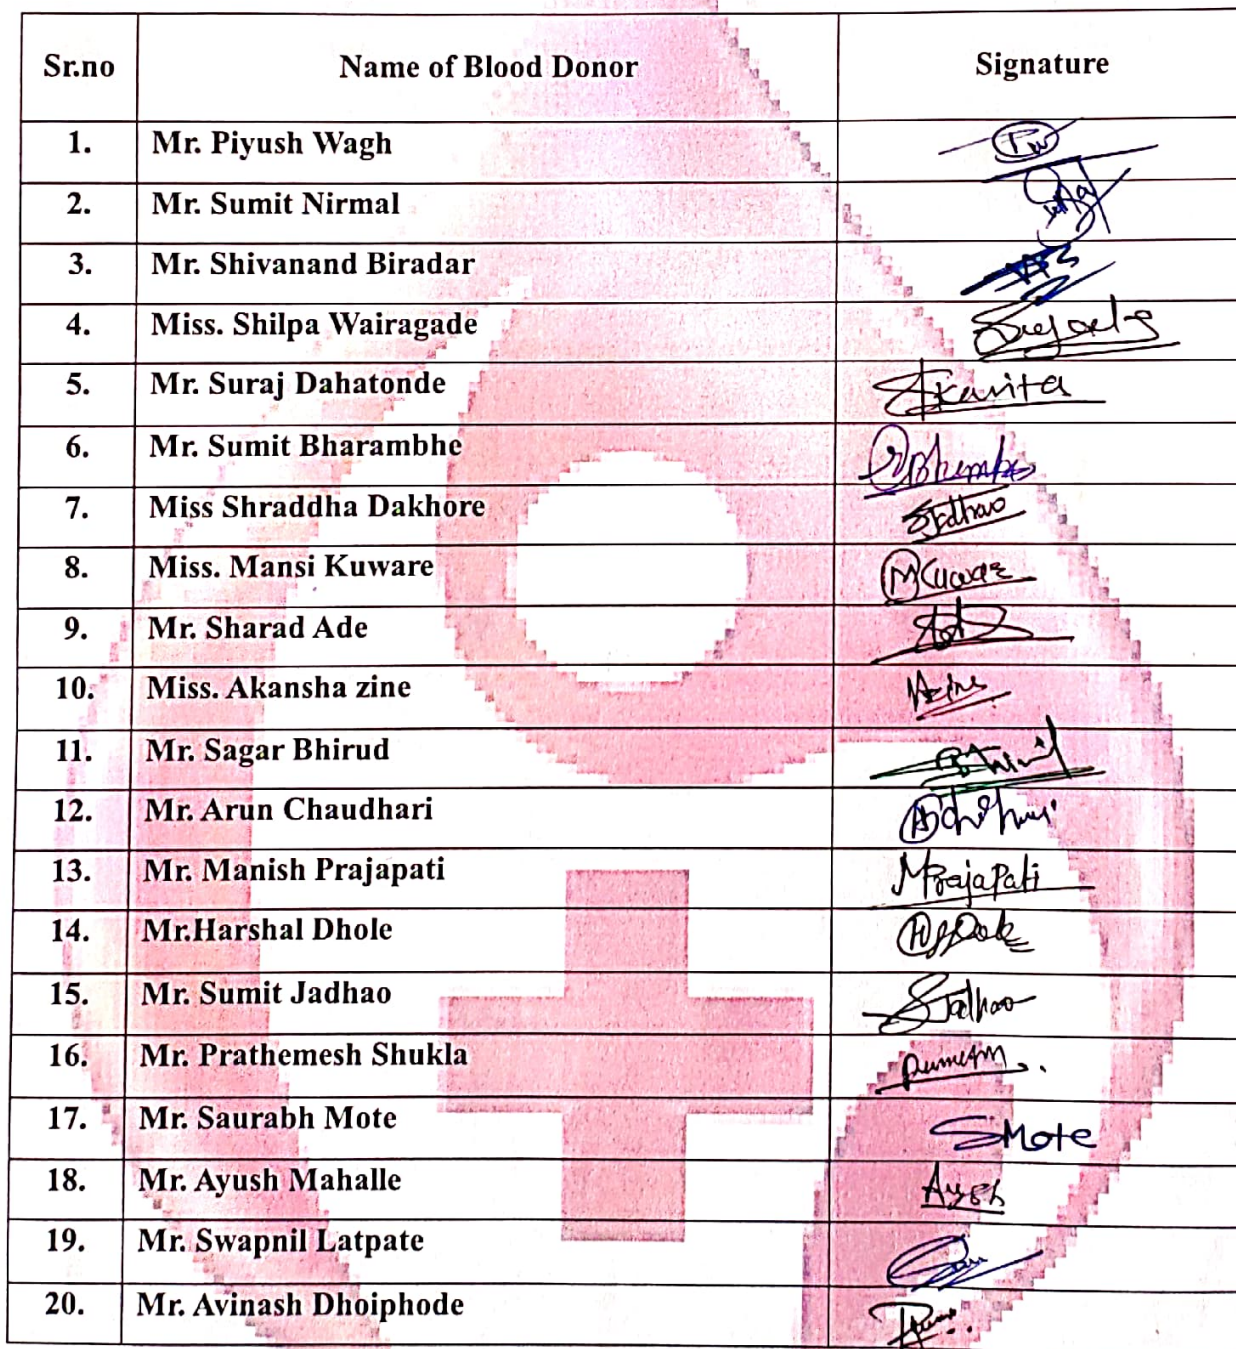 Sr.no Name of Blood Donor Signature
1. Mr. Piyush Wagh PW
2. Mr. Sumit Nirmal
3. Mr. Shivanand Biradar
4. Miss. Shilpa Wairagade
5. Mr. Suraj Dahatonde
6. Mr. Sumit Bharambhe
7. Miss Shraddha Dakhore
8. Miss. Mansi Kuware MKuware
9. Mr. Sharad Ade
10. Miss. Akansha zine
11. Mr. Sagar Bhirud
12. Mr. Arun Chaudhari
13. Mr. Manish Prajapati MPrajapati
14. Mr.Harshal Dhole
15. Mr. Sumit Jadhao SJadhao
16. Mr. Prathemesh Shukla
17. Mr. Saurabh Mote SMote
18. Mr. Ayush Mahalle
19. Mr. Swapnil Latpate
20. Mr. Avinash Dhoiphode